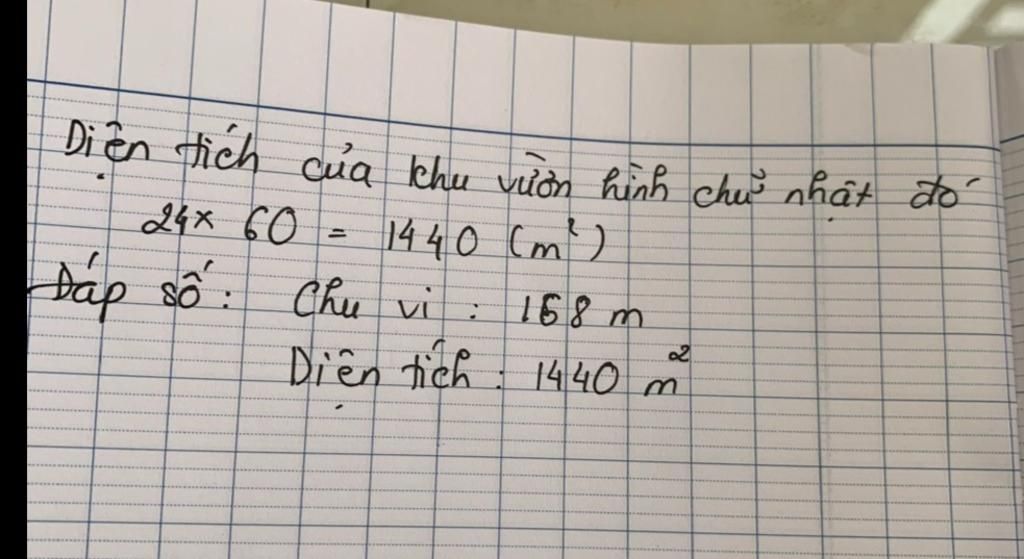 Diện tích của khu vườn hình chữ nhật đó
24 x 60 = 1440 (m²)
Đáp số: Chu vi : 168 m
Diện tích : 1440 m²